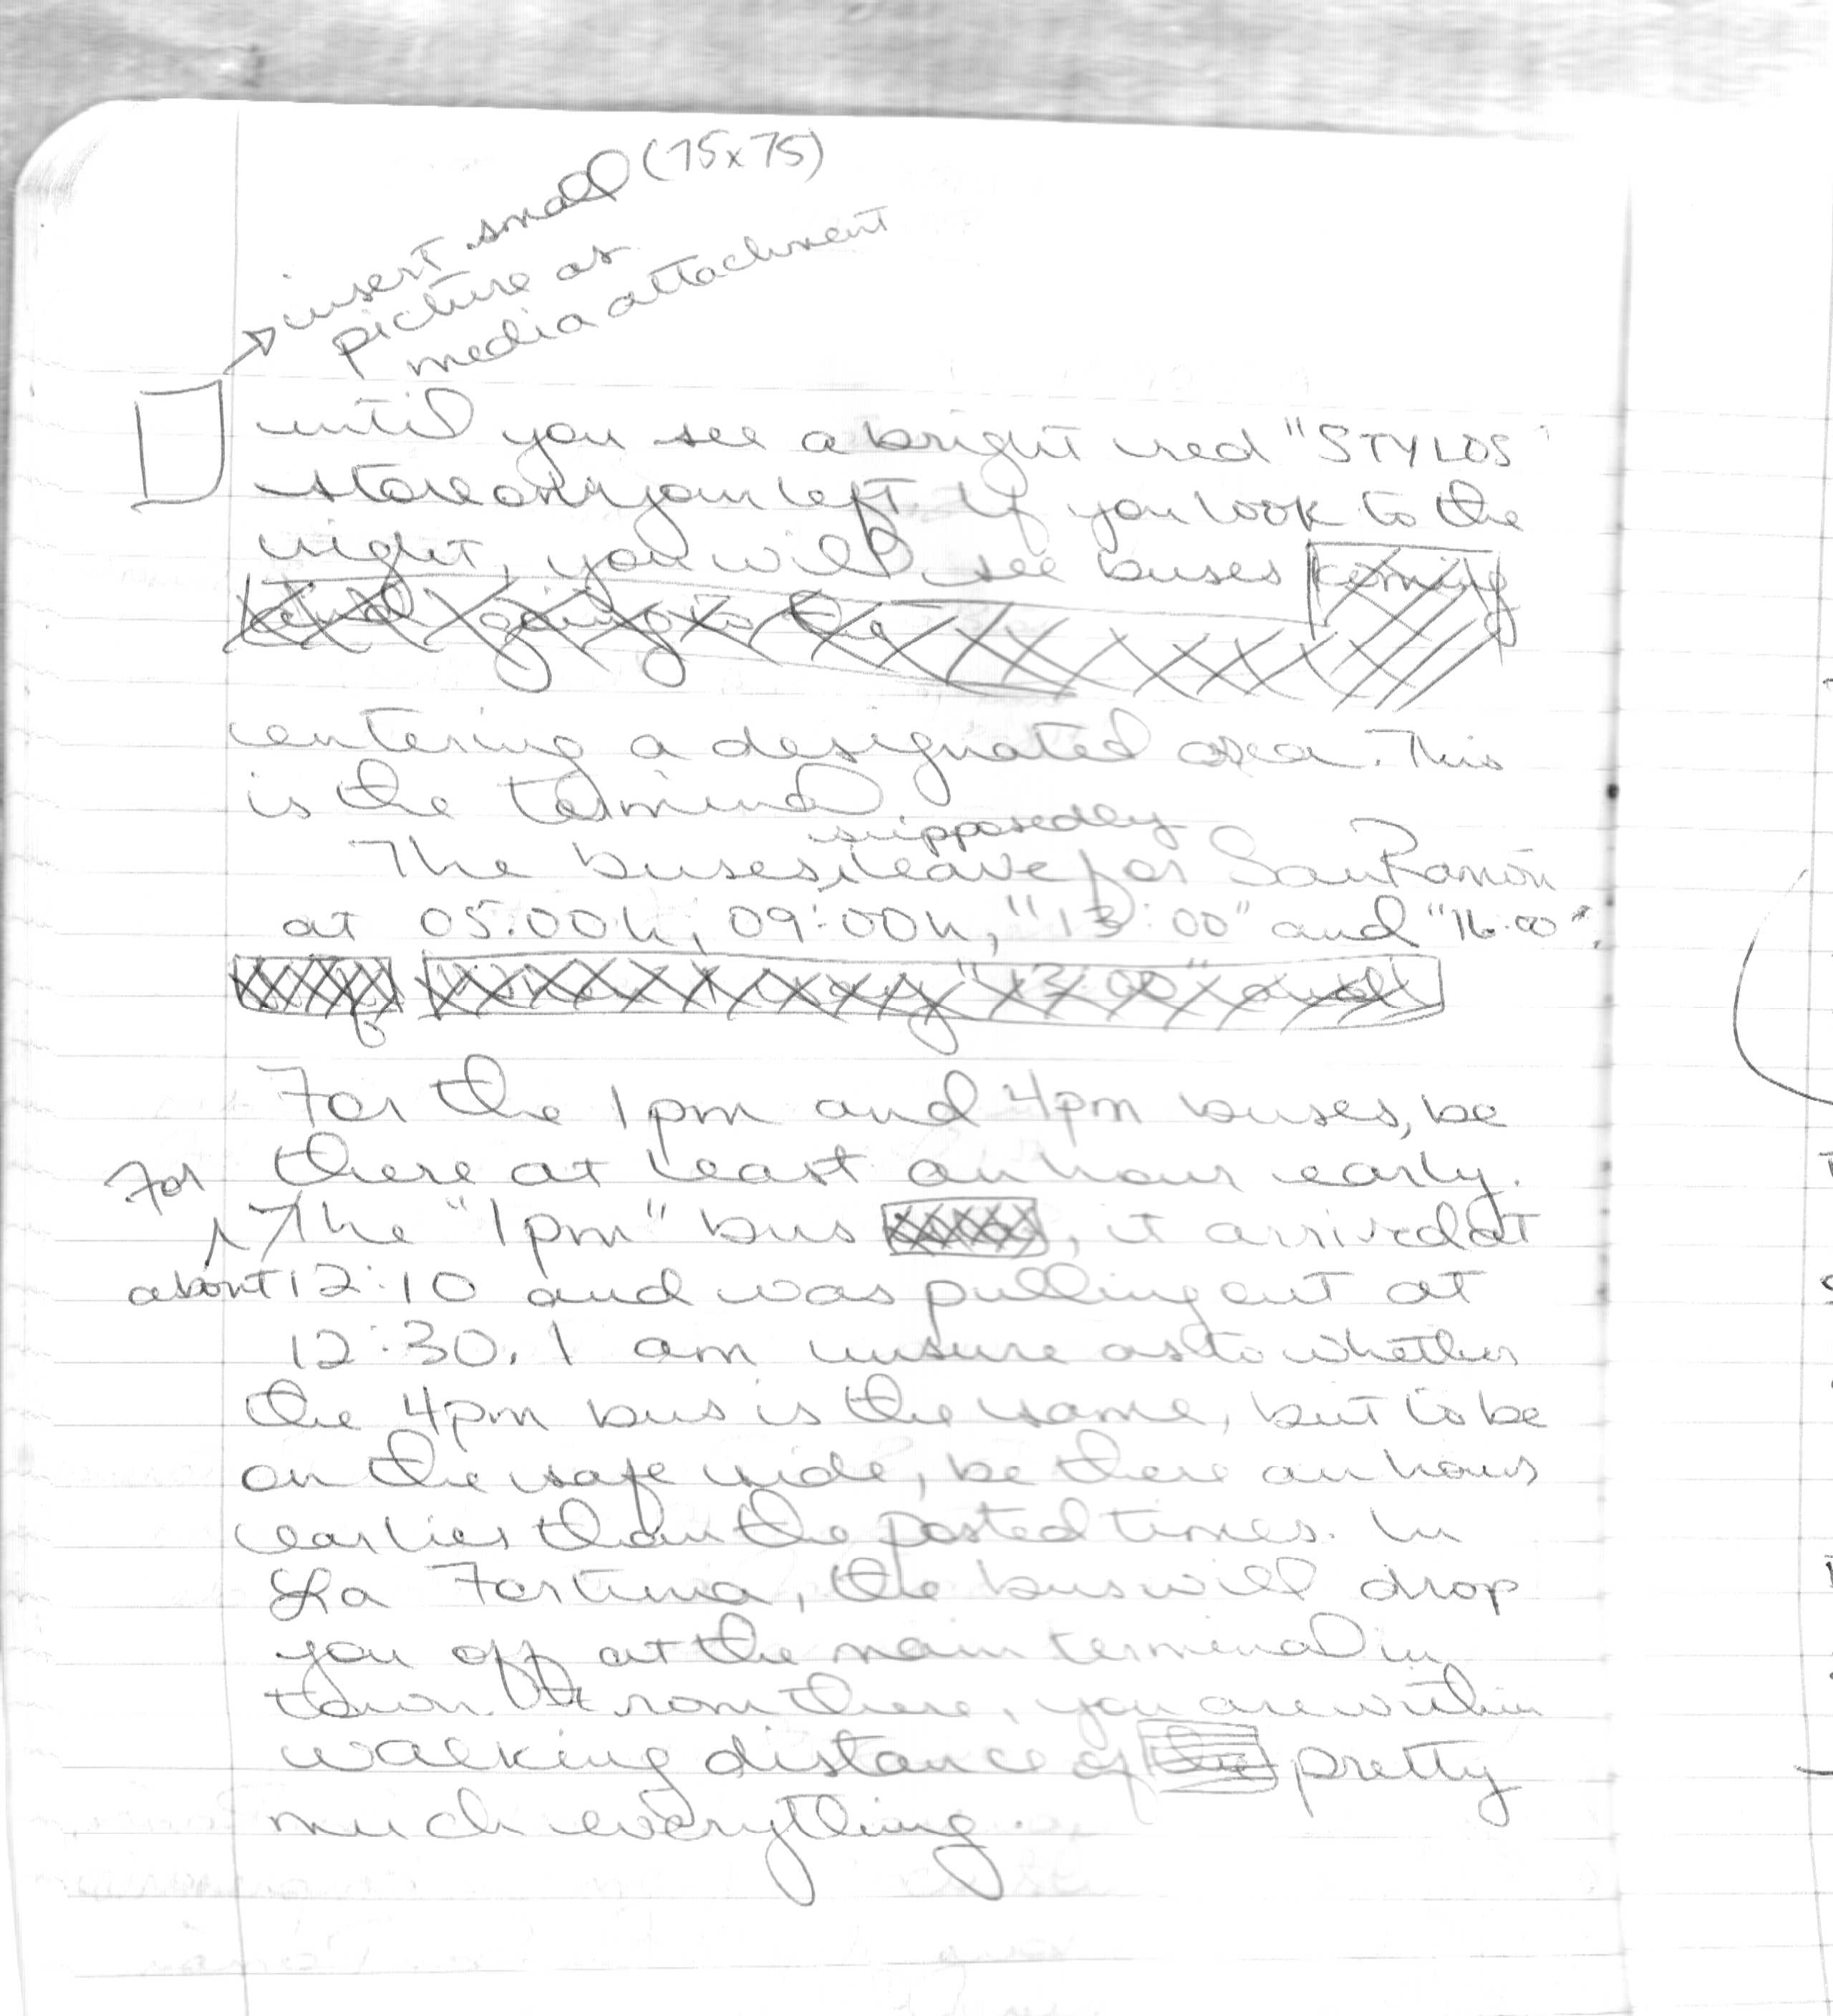 insert small (75x75)
picture as
media attachment
until you see a bright red "STYLOS"
store on your left. If you look to the
right, you will see buses coming
and going to the
entering a designated area. This
is the terminal
supposedly
The buses leave for San Ramón
at 05:00h, 09:00h, "13:00" and "16:00".
"13:00" and
For the 1pm and 4pm buses, be
there at least an hour early.
For
The "1pm" bus , it arrived at
about 12:10 and was pulling out at
12:30. I am unsure as to whether
the 4pm bus is the same, but to be
on the safe side, be there an hour
earlier than the posted times. In
La Fortuna, the bus will drop
you off at the main terminal in
town. From there, you are within
walking distance of the pretty
much everything.